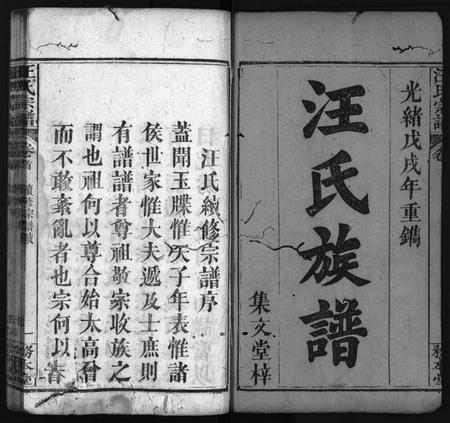 光緒戊戌年重鐫
汪氏族譜
集文堂梓
汪氏宗譜
汪氏續修宗譜序
蓋聞玉牒惟天子年表惟諸
侯世家惟大夫遞及士庶則
有譜譜者尊祖敬宗收族之
謂也祖何以尊合始太高曾
而不敢紊亂者也宗何以
汪氏宗譜
卷首